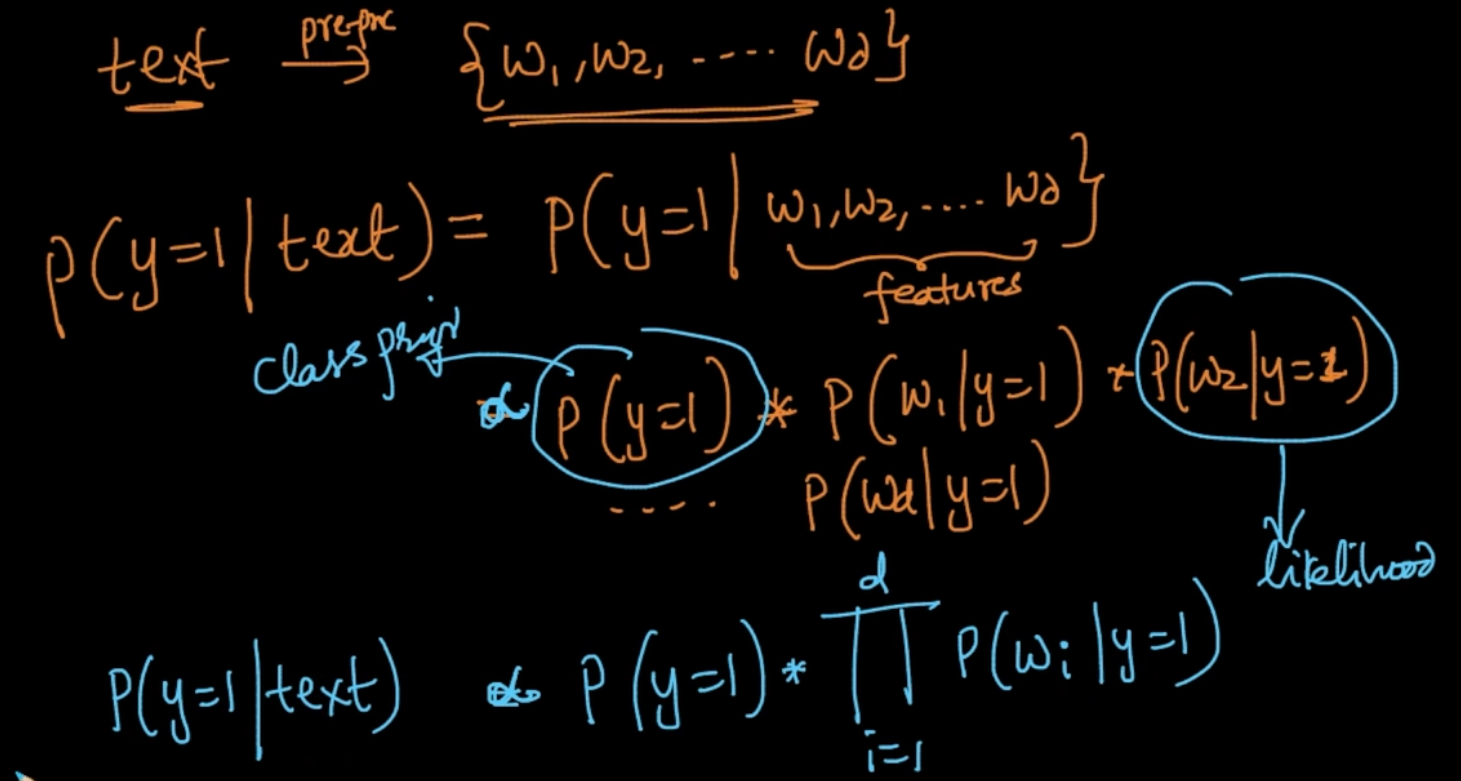 text pre-proc → {w₁, w₂, ---- w_d}
P(y=1 | text) = P(y=1 | w₁, w₂, .... w_d}
features
class prior
∝ P(y=1) * P(w₁|y=1) * P(w₂|y=1)
.... P(w_d|y=1)
likelihood
P(y=1|text) ∝ P(y=1) * ∏_{i=1}^{d} P(wᵢ|y=1)